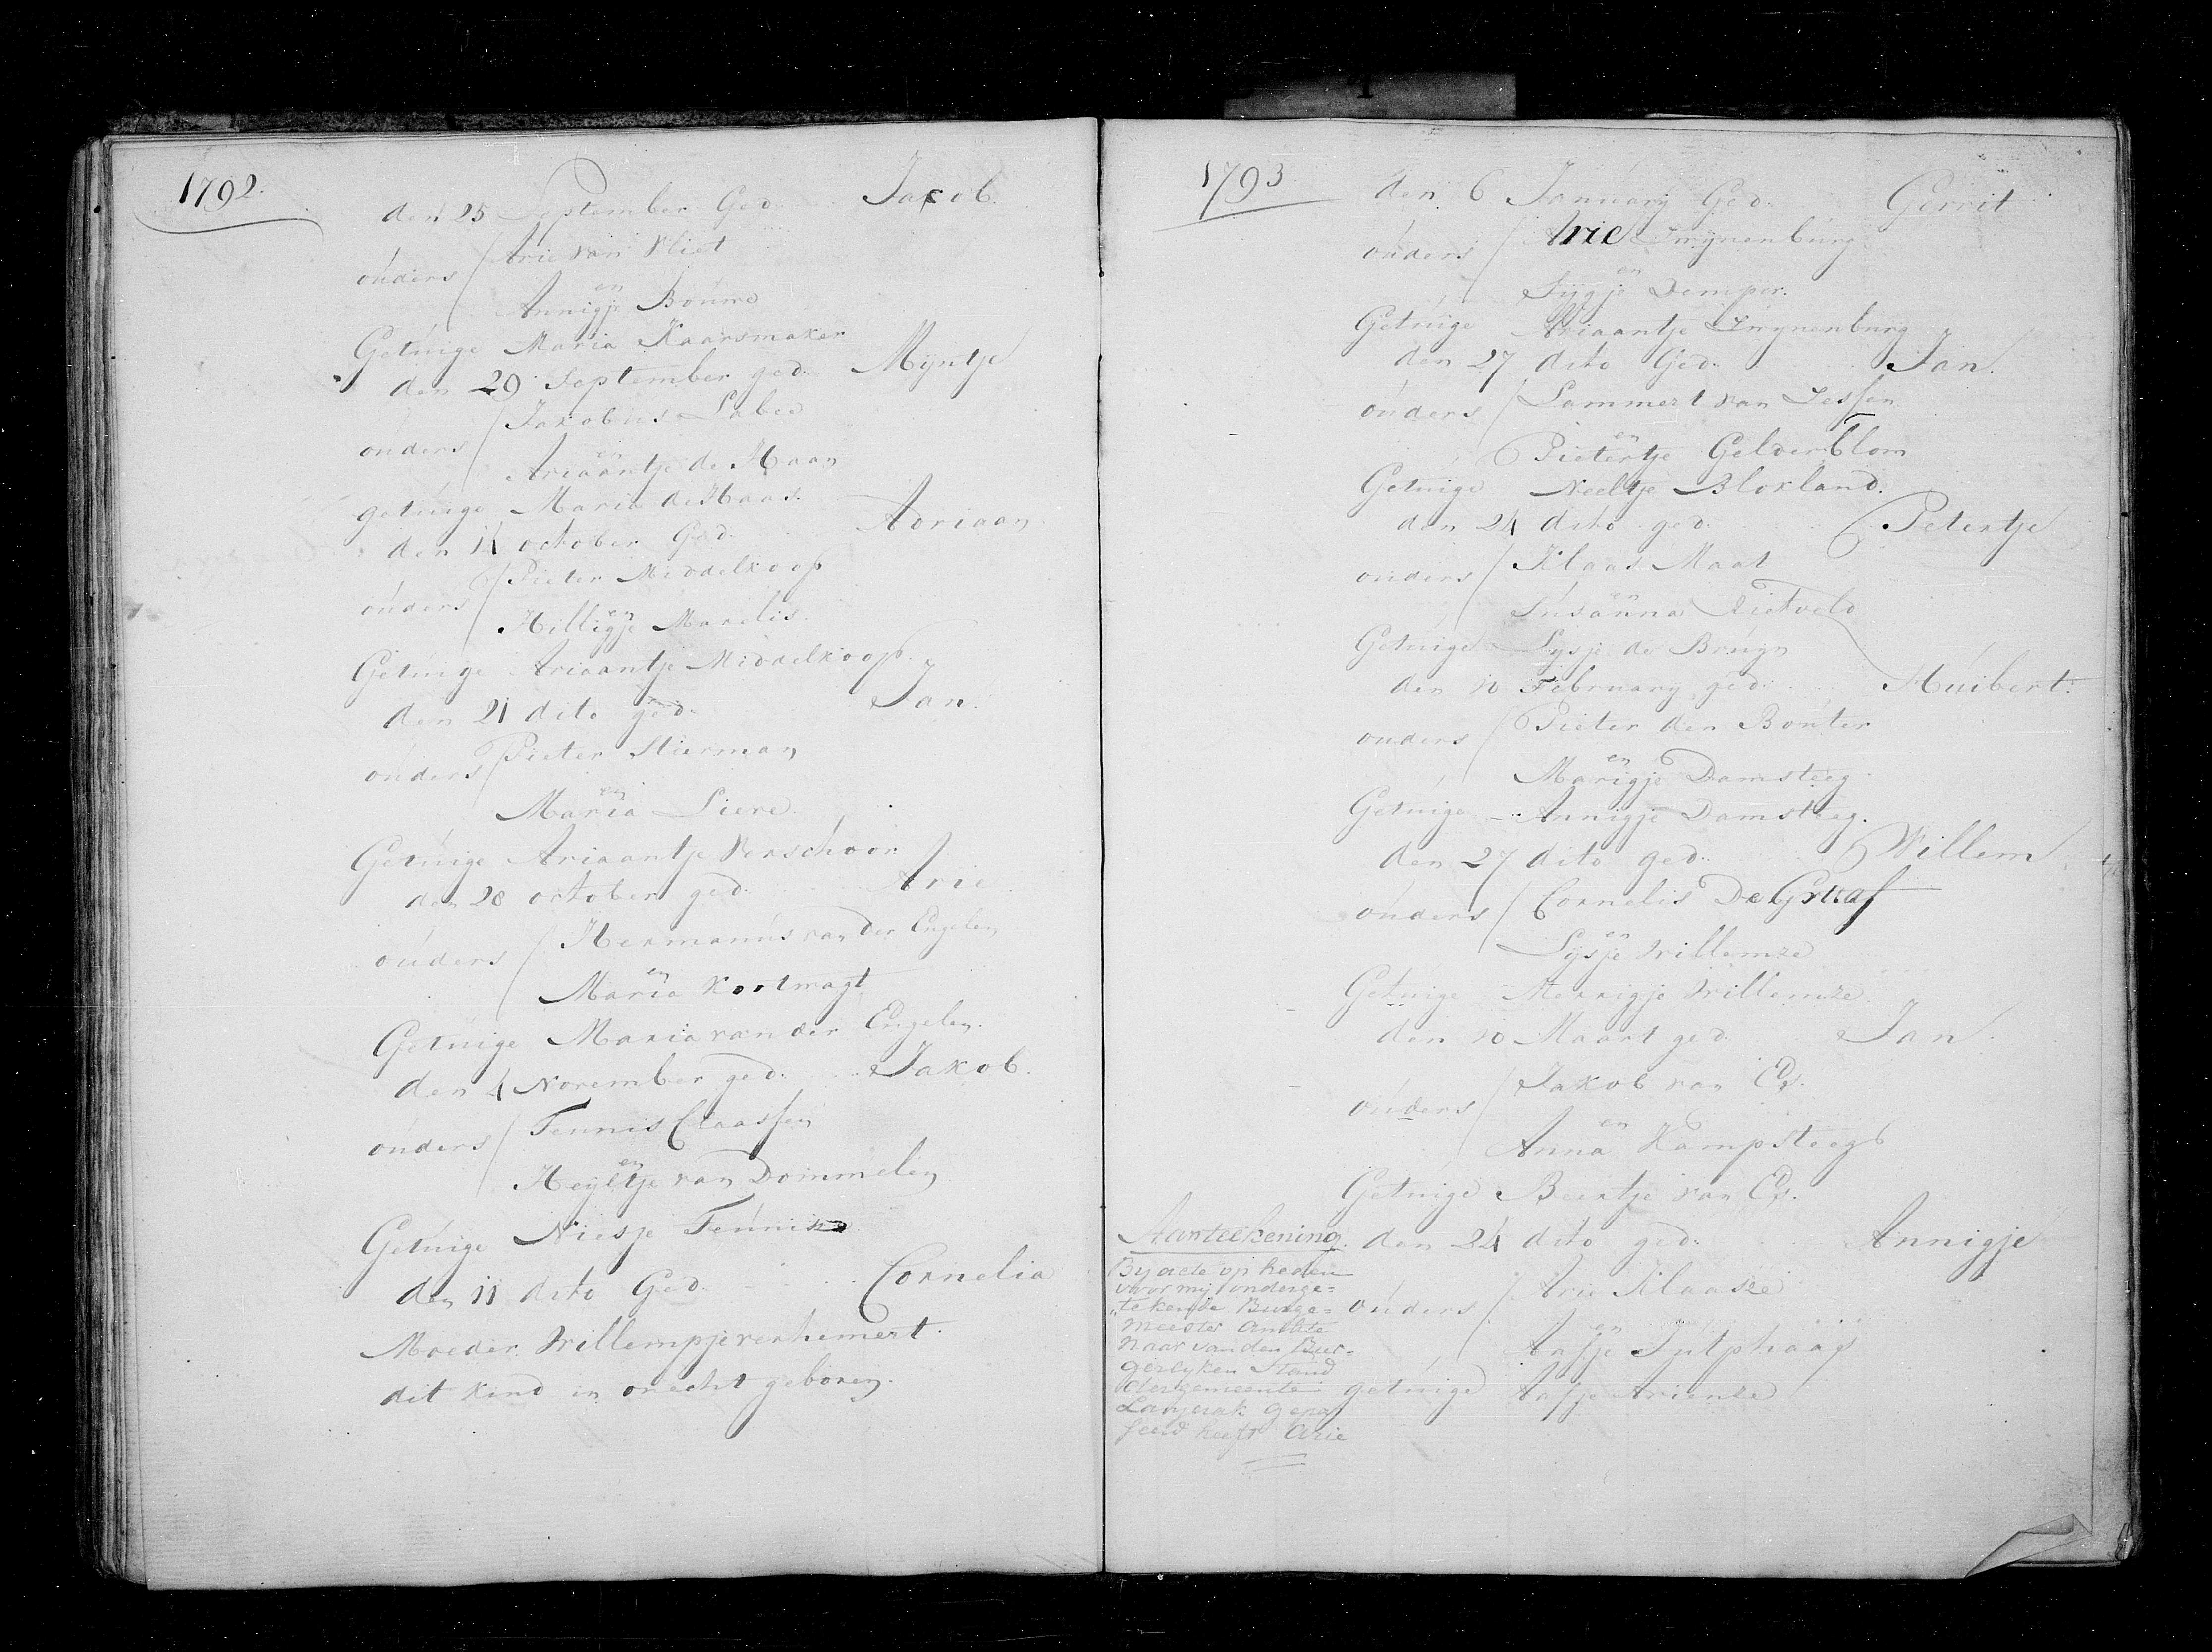 1792.
den 25 September Ged. Jacob.
ouders Arie van Vliet
en
Annigje Boume
Getuige Maria Kaarsmaker
den 29 September ged. Myntje
ouders Jakobus Labee
en
Ariaantje de Haan
getuige Maria de Haas.
den 14 october Ged. Adriaan
ouders Pieter Middelkoop
en
Hilligje Marelis.
Getuige Ariaantje Middelkoop.
den 21 dito ged. Jan.
ouders Pieter Stierman
en
Maria Liere
Getuige Ariaantje Verschoor.
den 28 october ged. Arie
ouders Hermanus van der Engelen
en
Maria Kortmagt
Getuige Maria van der Engelen.
den 4 November ged. Jakob.
ouders Teunis Claassen
en
Heyltje van Dommelen
Getuige Niesje Teunis
den 11 dito Ged. Cornelia
Moeder Willempje verhemert.
dit kind in onecht geboren.
1793
den 6 January Ged. Gerrit
ouders Arie Imynenburg
en
Sygje Demper.
Getuige Ariaantje Imynenburg
den 27 dito Ged. Jan.
ouders Lammert van Iessen
en
Pietertje Gelderblom
Getuige Neeltje Blokland.
den 24 dito ged. Petertje
ouders Klaas Maat
en
Susanna Rietveld
Getuige Lysje de Bruyn
den 10 February ged. Huibert.
ouders Pieter den Bouter
en
Marigje Damsteeg
Getuige Annigje Damsteeg.
den 27 dito ged. Willem
ouders Cornelis De Graaf
en
Lysje Willemze
Getuige Merrigje Willemze.
den 10 Maart ged. Jan
ouders Jakob van Es.
en
Anna Kampsteeg
Getuige Beertje van Es.
den 24 dito ged. Annigje
ouders Arie Klaasze
en
Aafje Sutphaas
getuige Aafje Arienze
Aanteekening.
By acte op heden
voor my onderge=
"tekende Burge=
meester Ambte
naar van den Bur=
gerlyken Stand
der gemeente
Langerak gepas
seerd heeft Arie